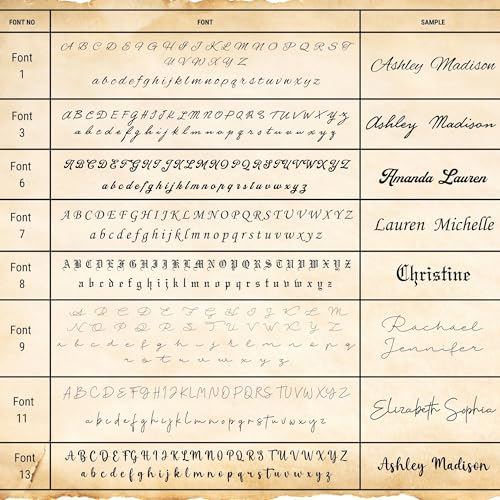 FONT NO FONT SAMPLE
Font 1
A B C D E F G H I J K L M N O P Q R S T
U V W X Y Z
a b c d e f g h i j k l m n o p q r s t u v w x y z
Ashley Madison
Font 3
A B C D E F G H I J K L M N O P Q R S T U V W X Y Z
a b c d e f g h i j k l m n o p q r s t u v w x y z
Ashley Madison
Font 6
A B C D E F G H I J K L M N O P Q R S T U V W X Y Z
a b c d e f g h i j k l m n o p q r s t u v w x y z
Amanda Lauren
Font 7
A B C D E F G H I J K L M N O P Q R S T U V W X Y Z
a b c d e f g h i j k l m n o p q r s t u v w x y z
Lauren Michelle
Font 8
A B C D E F G H I J K L M N O P Q R S T U V W X Y Z
a b c d e f g h i j k l m n o p q r s t u v w x y z
Christine
Font 9
A B C D E F G H I J K L M
N O P Q R S T U V W X Y Z
a b c d e f g h i j k l m n o p q
r s t u v w x y z
Rachael
Jennifer
Font 11
A B C D E F G H I J K L M N O P Q R S T U V W X Y Z
a b c d e f g h i j k l m n o p q r s t u v w x y z
Elizabeth Sophia
Font 13
A B C D E F G H I J K L M N O P Q R S T U V W X Y Z
a b c d e f g h i j k l m n o p q r s t u v w x y z
Ashley Madison